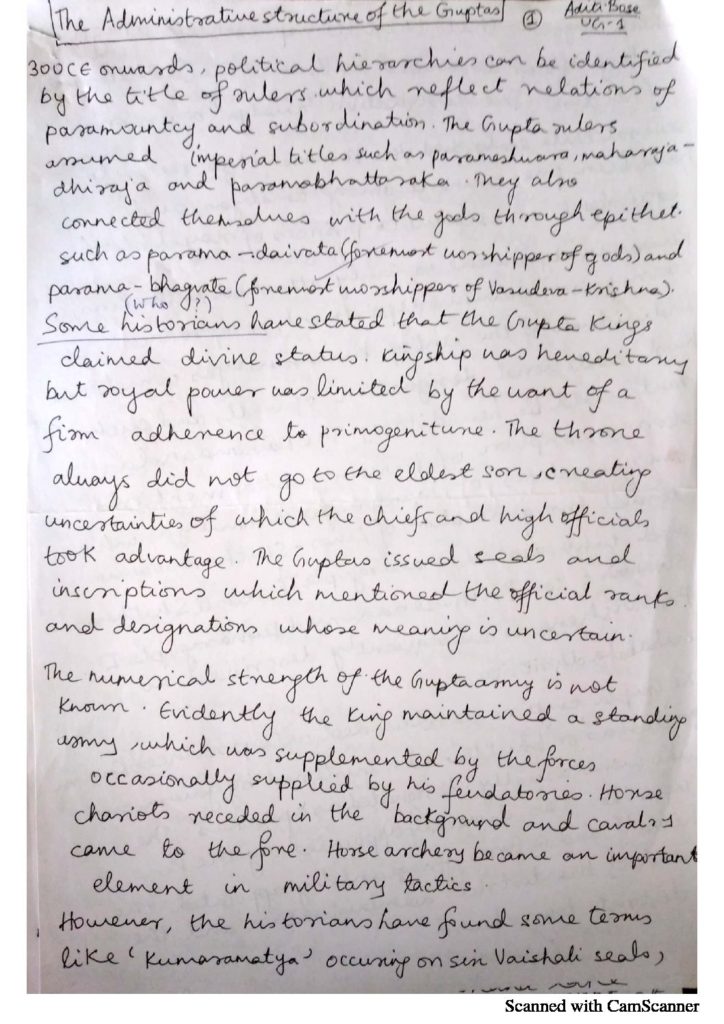 The Administrative structure of the Guptas ① Aditi Bose
UG-1
300CE onwards, political hierarchies can be identified
by the title of rulers which reflect relations of
paramountcy and subordination. The Gupta rulers
assumed imperial titles such as parameshwara, maharaja-
dhiraja and paramabhattaraka. They also
connected themselves with the gods through epithet.
such as parama-daivata (foremost worshipper of gods) and
parama-bhagvate (foremost worshipper of Vasudeva-Krishna).
(Who?)
Some historians have stated that the Gupta Kings
claimed divine status. Kingship was hereditary
but royal power was limited by the want of a
firm adherence to primogeniture. The throne
always did not go to the eldest son, creating
uncertainties of which the chiefs and high officials
took advantage. The Guptas issued seals and
inscriptions which mentioned the official ranks
and designations whose meaning is uncertain.
The numerical strength of the Gupta army is not
known. Evidently the king maintained a standing
army, which was supplemented by the forces
occasionally supplied by his feudatories. Horse
chariots receded in the background and cavalry
came to the fore. Horse archery became an important
element in military tactics.
However, the historians have found some terms
like 'Kumaramatya' occuring on six Vaishali seals,
Scanned with CamScanner